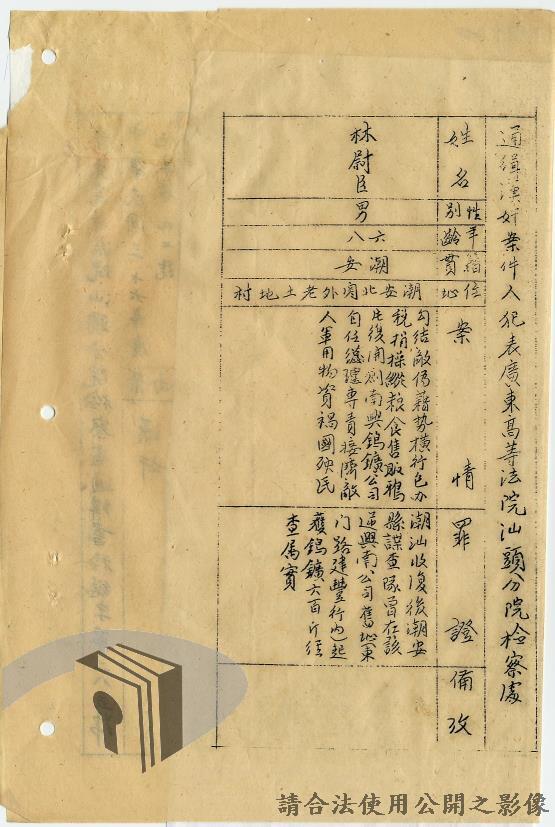 通緝漢奸案件人犯表廣東高等法院汕頭分院檢察處
姓名
性別
年齡
籍貫
住地
案情
罪證
備攷
林尉臣
男
六八
潮安
潮安北廂外老土地村
勾結敵偽藉势橫行包办
稅捐操縱粮食售販鴉
片後開創南興鎢鑛公司
自任總理專責接濟敵
人軍用物資禍國殃民
潮汕收復後潮安
縣諜查隊曾在該
逆興南公司舊地東
門路建豐行内起
獲鎢鑛六百斤經
查属實
請合法使用公開之影像